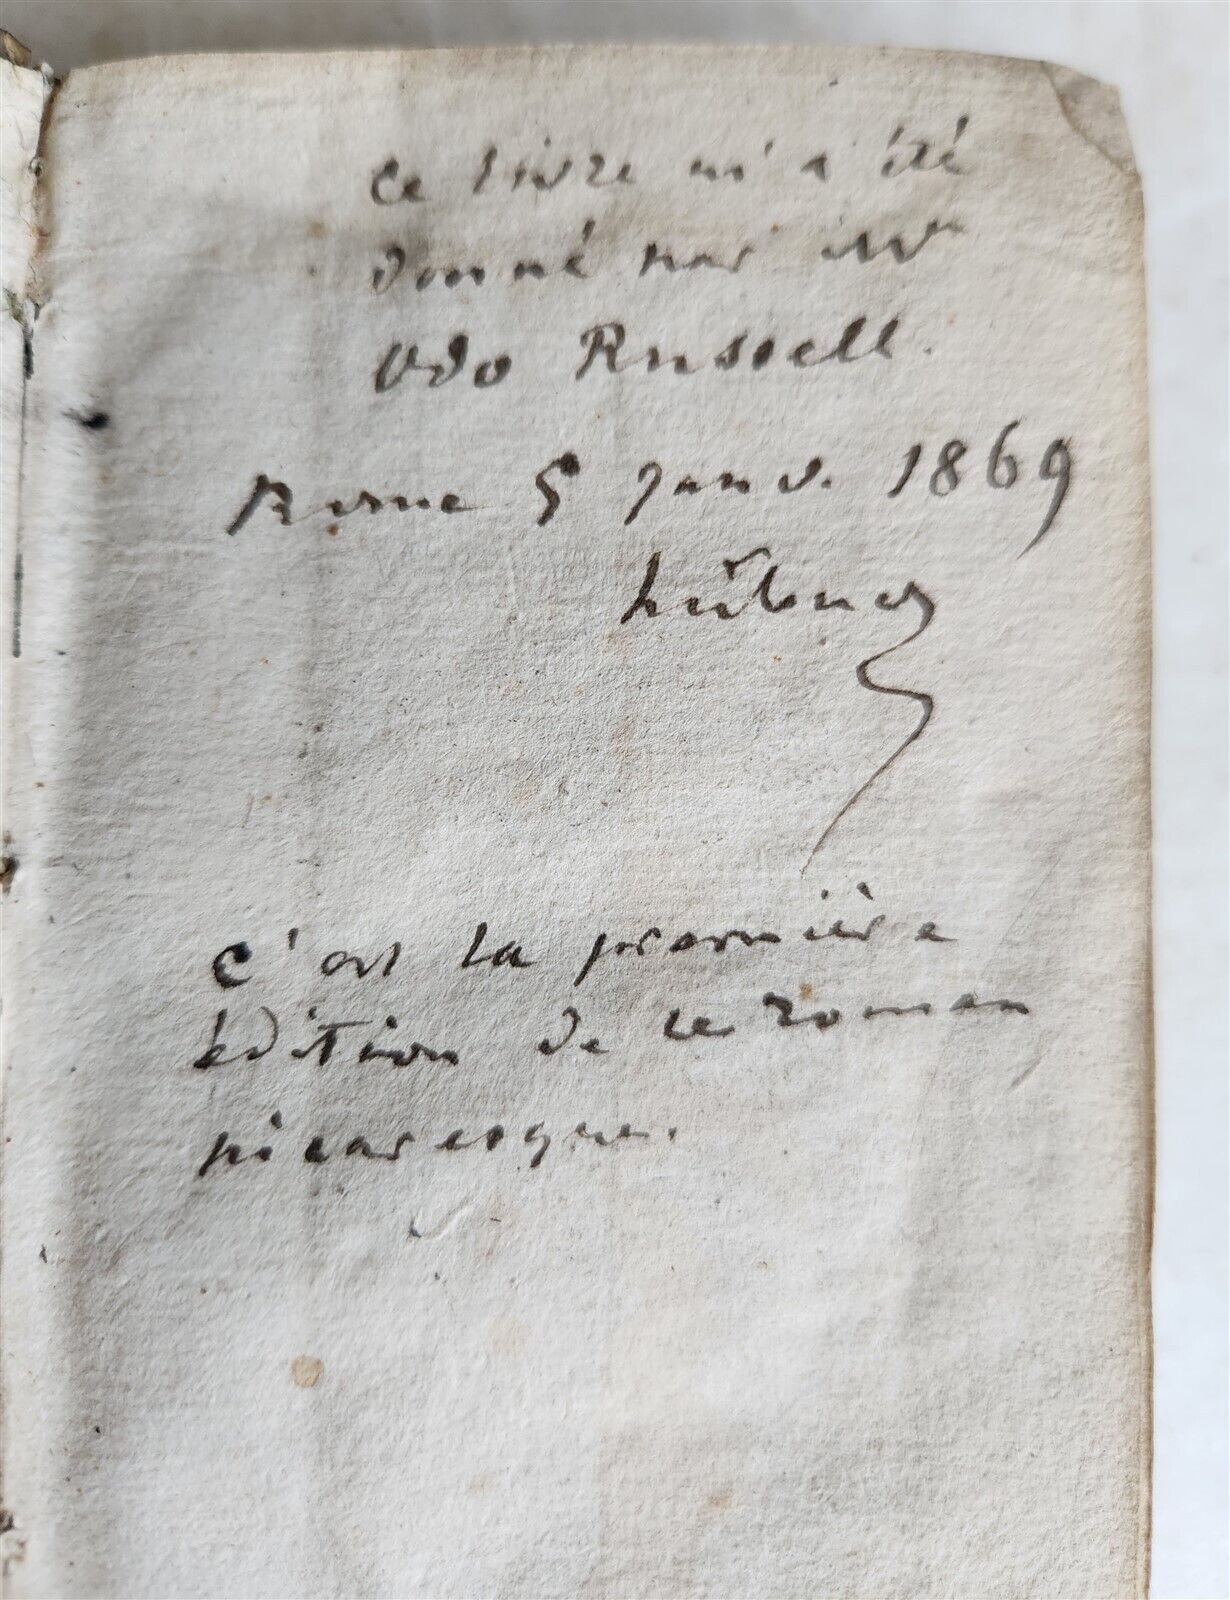 Ce livre m'a été
donné par Mr
Odo Russell.
Rome 5 Janv. 1869
Hübner
C'est la première
édition de ce roman
picaresque.